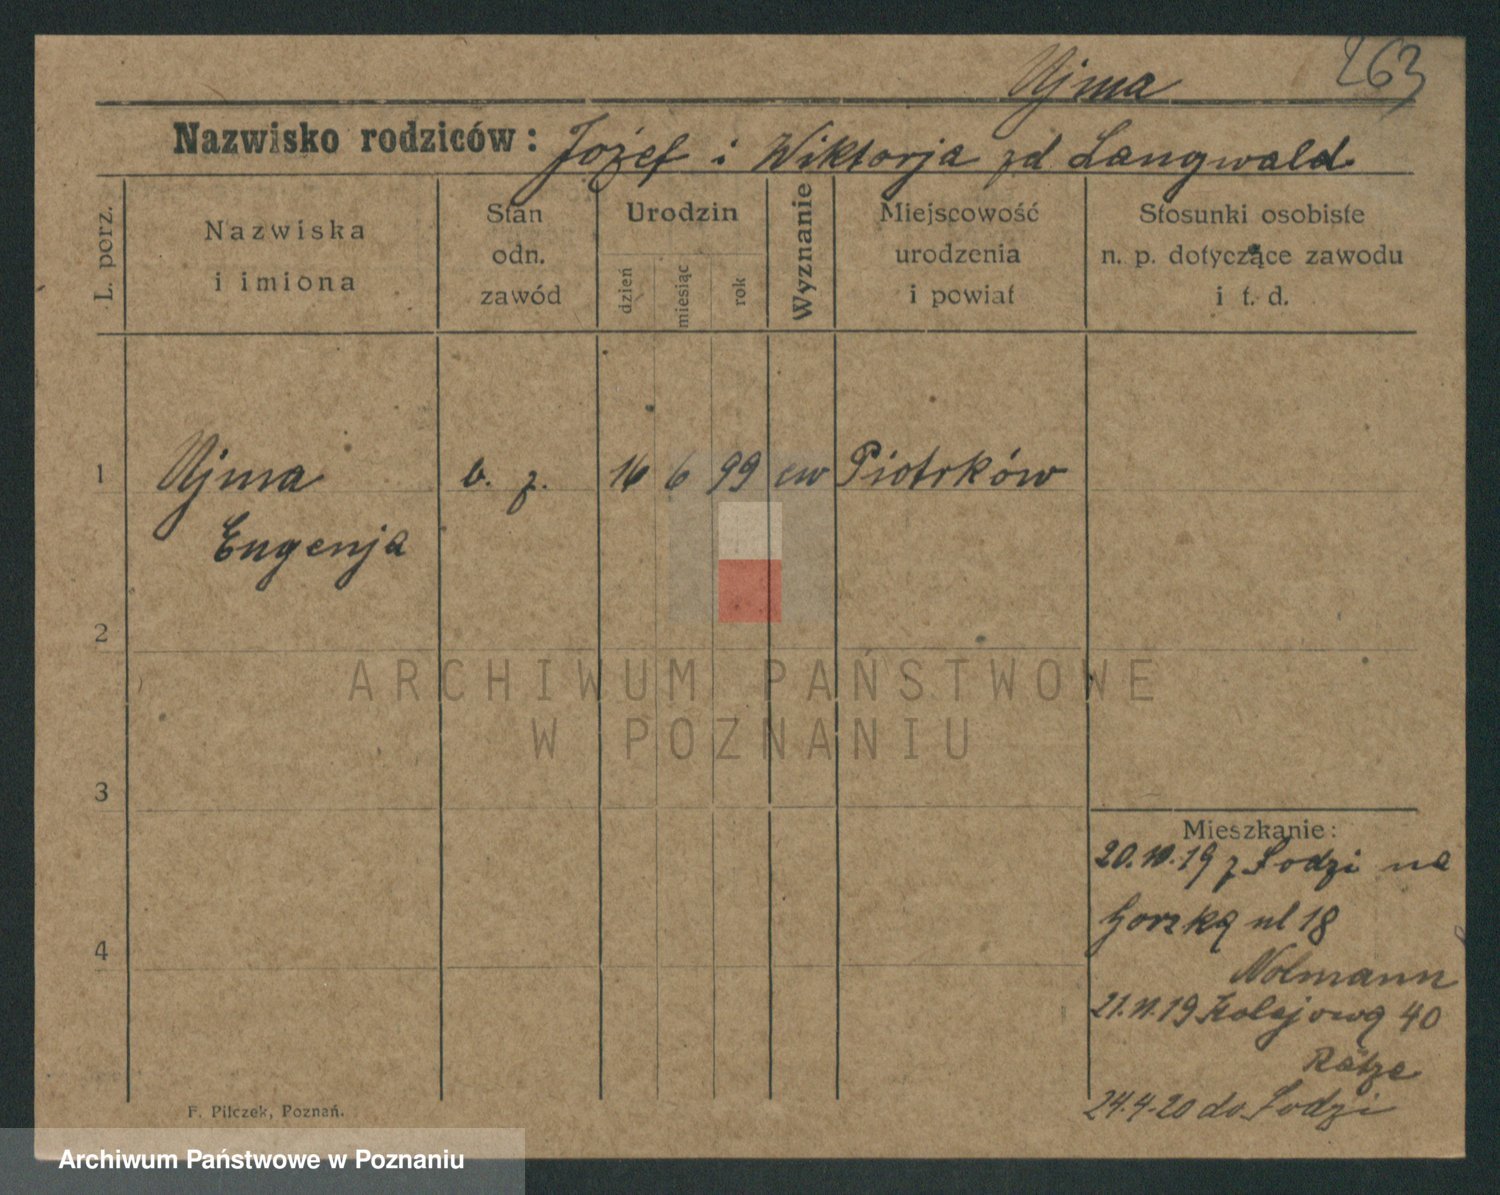 Ujma 263
Nazwisko rodziców: Józef i Wiktorja zd Langwald
L. porz.
Nazwiska
i imiona
Stan
odn.
zawód
Urodzin
dzień
miesiąc
rok
Wyznanie
Miejscowość
urodzenia
i powiat
Stosunki osobiste
n. p. dotyczące zawodu
i t. d.
1 Ujma b. z. 16 6 99 ew Piotrków
Eugenja
2
ARCHIWUM PAŃSTWOWE
W POZNANIU
3
Mieszkanie:
20.10.19 z Łodzi na
Gorzką ul 18
4
Nolmann
21.11.19 Kolejową 40
Rätze
24.4.20 do Łodzi
F. Pilczek, Poznań.
Archiwum Państwowe w Poznaniu